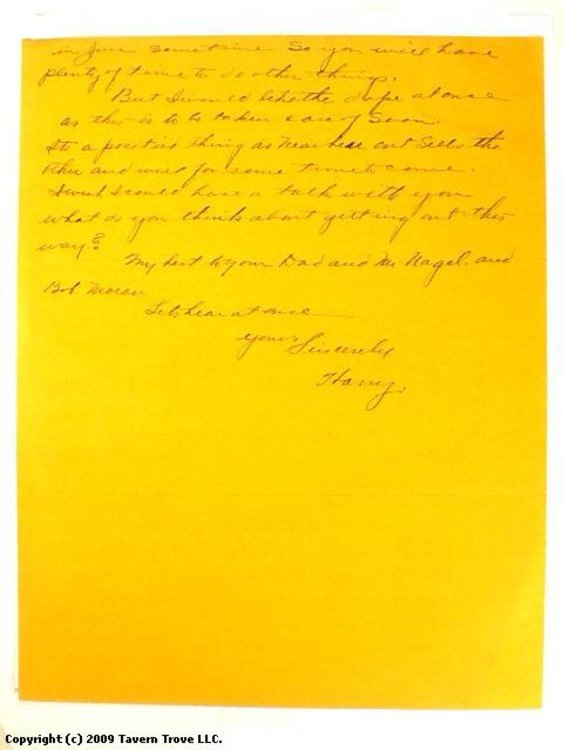 in Jan sometime so you will have
plenty of time to do other things.
But I would like the dope at once
as this is to be taken care of soon.
Its a positive thing as near beer out sells the
other and will for some time to come.
I wish I could have a talk with you
what do you think about getting out this
way?
My best to your Dad and Mr Nagel. and
Bob Moran
Lets hear at once
Yours Sincerely
Harry.
Copyright (c) 2009 Tavern Trove LLC.